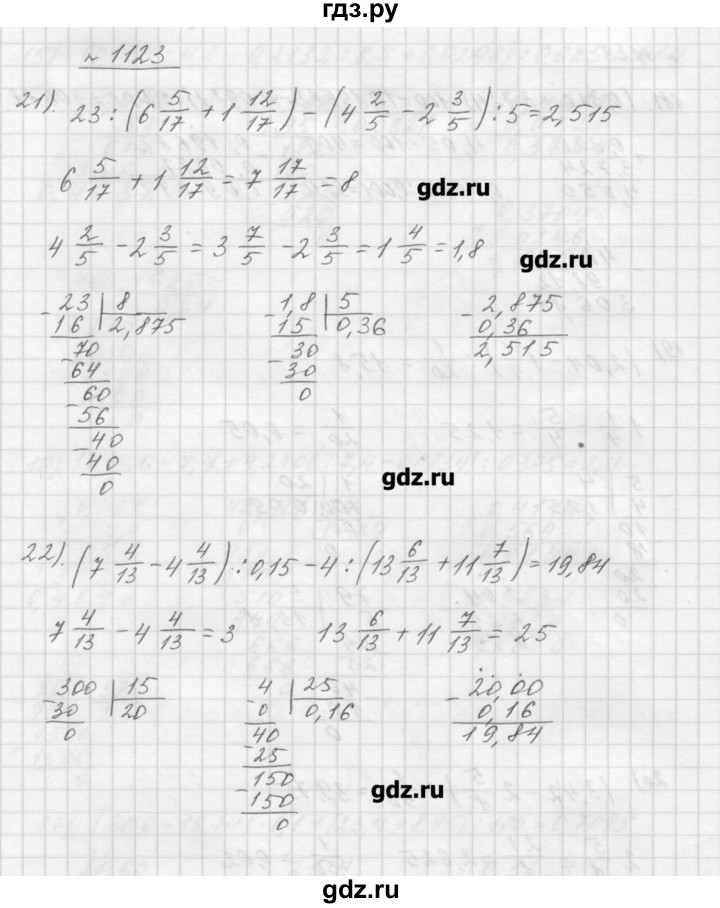 гдз.ру
№ 1123
21). 23 : (6 5/17 + 1 12/17) - (4 2/5 - 2 3/5) : 5 = 2,515
6 5/17 + 1 12/17 = 7 17/17 = 8
gdz.ru
4 2/5 - 2 3/5 = 3 7/5 - 2 3/5 = 1 4/5 = 1,8
gdz.ru
- 23 | 8
16 | 2,875
- 70
64
60
- 56
- 40
40
0
- 1,8 | 5
15 | 0,36
- 30
30
0
- 2,875
0,36
2,515
gdz.ru
22). (7 4/13 - 4 4/13) : 0,15 - 4 : (13 6/13 + 11 7/13) = 19,84
7 4/13 - 4 4/13 = 3
13 6/13 + 11 7/13 = 25
- 300 | 15
30 | 20
0
- 4 | 25
0 | 0,16
40
- 25
- 150
150
0
- 20,00
0,16
19,84
gdz.ru
gdz.ru